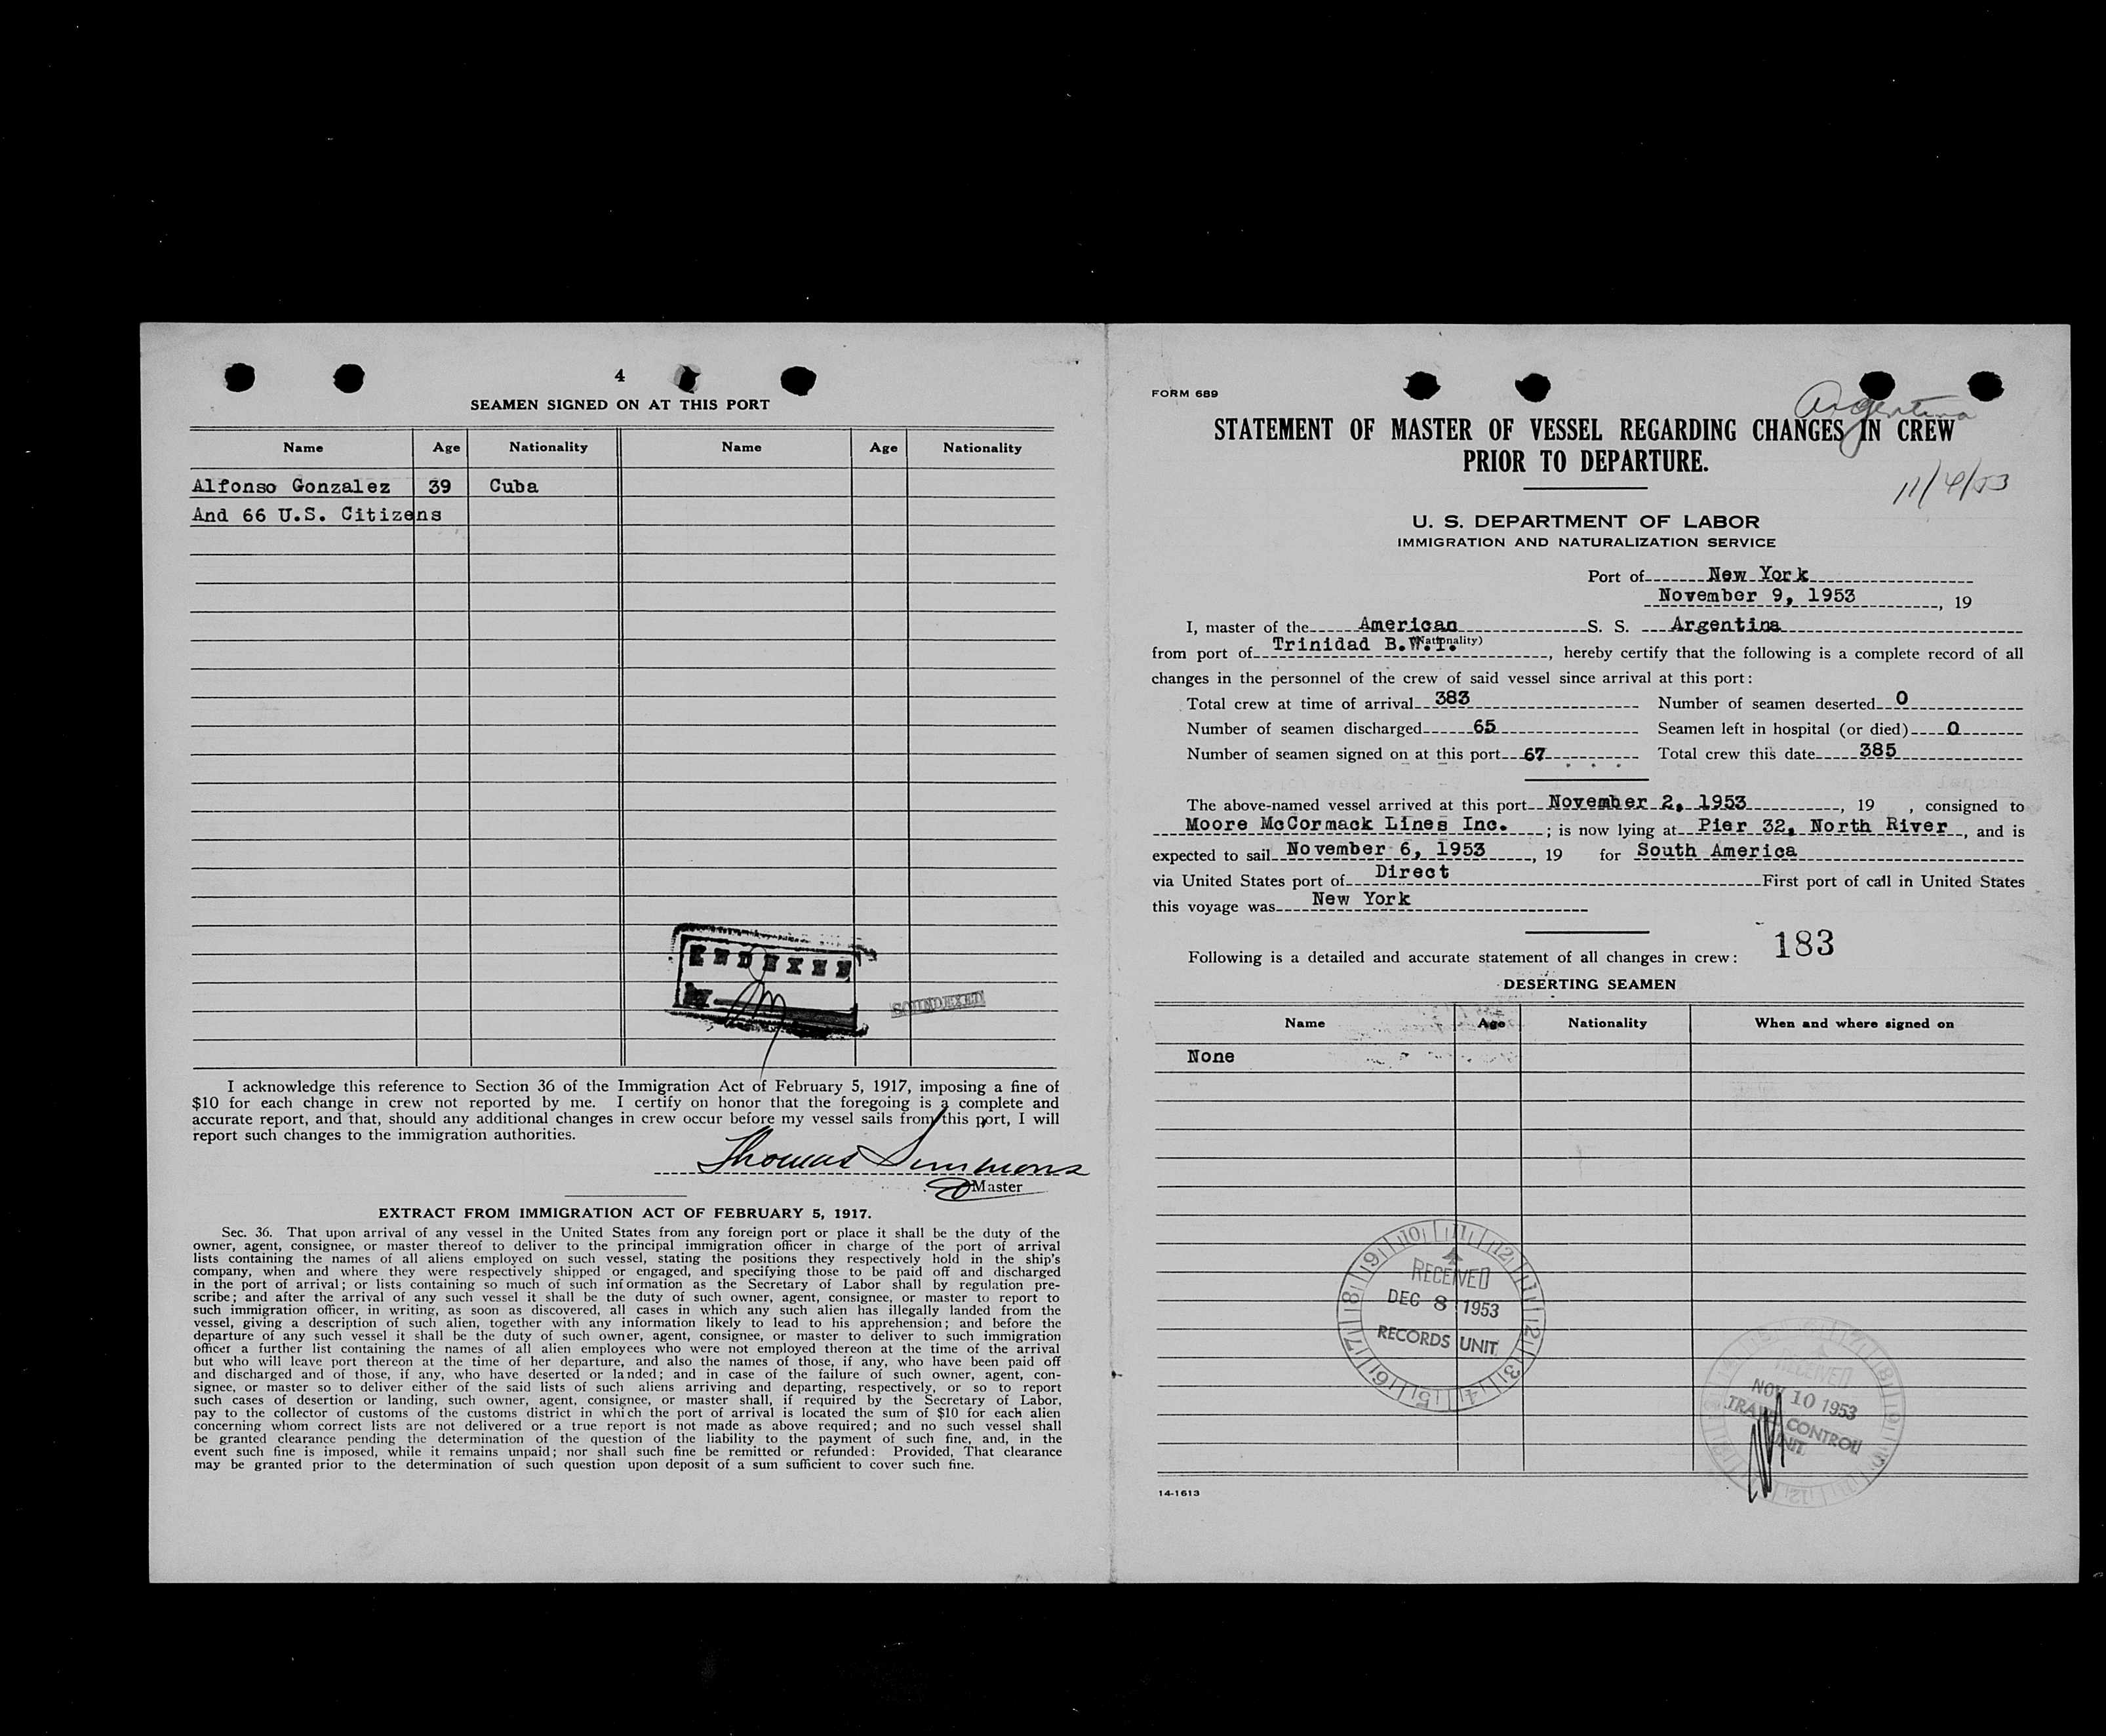 4
SEAMEN SIGNED ON AT THIS PORT
Name Age Nationality Name Age Nationality
Alfonso Gonzalez 39 Cuba
And 66 U.S. Citizens
INDEXED
SOUNDEXED
I acknowledge this reference to Section 36 of the Immigration Act of February 5, 1917, imposing a fine of
$10 for each change in crew not reported by me. I certify on honor that the foregoing is a complete and
accurate report, and that, should any additional changes in crew occur before my vessel sails from this port, I will
report such changes to the immigration authorities.
Thomas Simmons
Master
EXTRACT FROM IMMIGRATION ACT OF FEBRUARY 5, 1917.
Sec. 36. That upon arrival of any vessel in the United States from any foreign port or place it shall be the duty of the
owner, agent, consignee, or master thereof to deliver to the principal immigration officer in charge of the port of arrival
lists containing the names of all aliens employed on such vessel, stating the positions they respectively hold in the ship's
company, when and where they were respectively shipped or engaged, and specifying those to be paid off and discharged
in the port of arrival; or lists containing so much of such information as the Secretary of Labor shall by regulation pre-
scribe; and after the arrival of any such vessel it shall be the duty of such owner, agent, consignee, or master to report to
such immigration officer, in writing, as soon as discovered, all cases in which any such alien has illegally landed from the
vessel, giving a description of such alien, together with any information likely to lead to his apprehension; and before the
departure of any such vessel it shall be the duty of such owner, agent, consignee, or master to deliver to such immigration
officer a further list containing the names of all alien employees who were not employed thereon at the time of the arrival
but who will leave port thereon at the time of her departure, and also the names of those, if any, who have been paid off
and discharged and of those, if any, who have deserted or landed; and in case of the failure of such owner, agent, con-
signee, or master so to deliver either of the said lists of such aliens arriving and departing, respectively, or so to report
such cases of desertion or landing, such owner, agent, consignee, or master shall, if required by the Secretary of Labor,
pay to the collector of customs of the customs district in which the port of arrival is located the sum of $10 for each alien
concerning whom correct lists are not delivered or a true report is not made as above required; and no such vessel shall
be granted clearance pending the determination of the question of the liability to the payment of such fine, and, in the
event such fine is imposed, while it remains unpaid; nor shall such fine be remitted or refunded: Provided, That clearance
may be granted prior to the determination of such question upon deposit of a sum sufficient to cover such fine.
FORM 689
Argentina
STATEMENT OF MASTER OF VESSEL REGARDING CHANGES IN CREW
PRIOR TO DEPARTURE.
11/4/53
U. S. DEPARTMENT OF LABOR
IMMIGRATION AND NATURALIZATION SERVICE
Port of New York
November 9, 1953, 19
I, master of the American S. S. Argentina
(Nationality)
from port of Trinidad B.W.I., hereby certify that the following is a complete record of all
changes in the personnel of the crew of said vessel since arrival at this port:
Total crew at time of arrival 383 Number of seamen deserted 0
Number of seamen discharged 65 Seamen left in hospital (or died) 0
Number of seamen signed on at this port 67 Total crew this date 385
The above-named vessel arrived at this port November 2, 1953, 19 , consigned to
Moore McCormack Lines Inc.; is now lying at Pier 32, North River, and is
expected to sail November 6, 1953, 19 for South America
via United States port of Direct First port of call in United States
this voyage was New York
183
Following is a detailed and accurate statement of all changes in crew:
DESERTING SEAMEN
Name Age Nationality When and where signed on
None
RECEIVED
DEC 8 1953
RECORDS UNIT
RECEIVED
NOV 10 1953
TRAVEL CONTROL
UNIT
14-1613